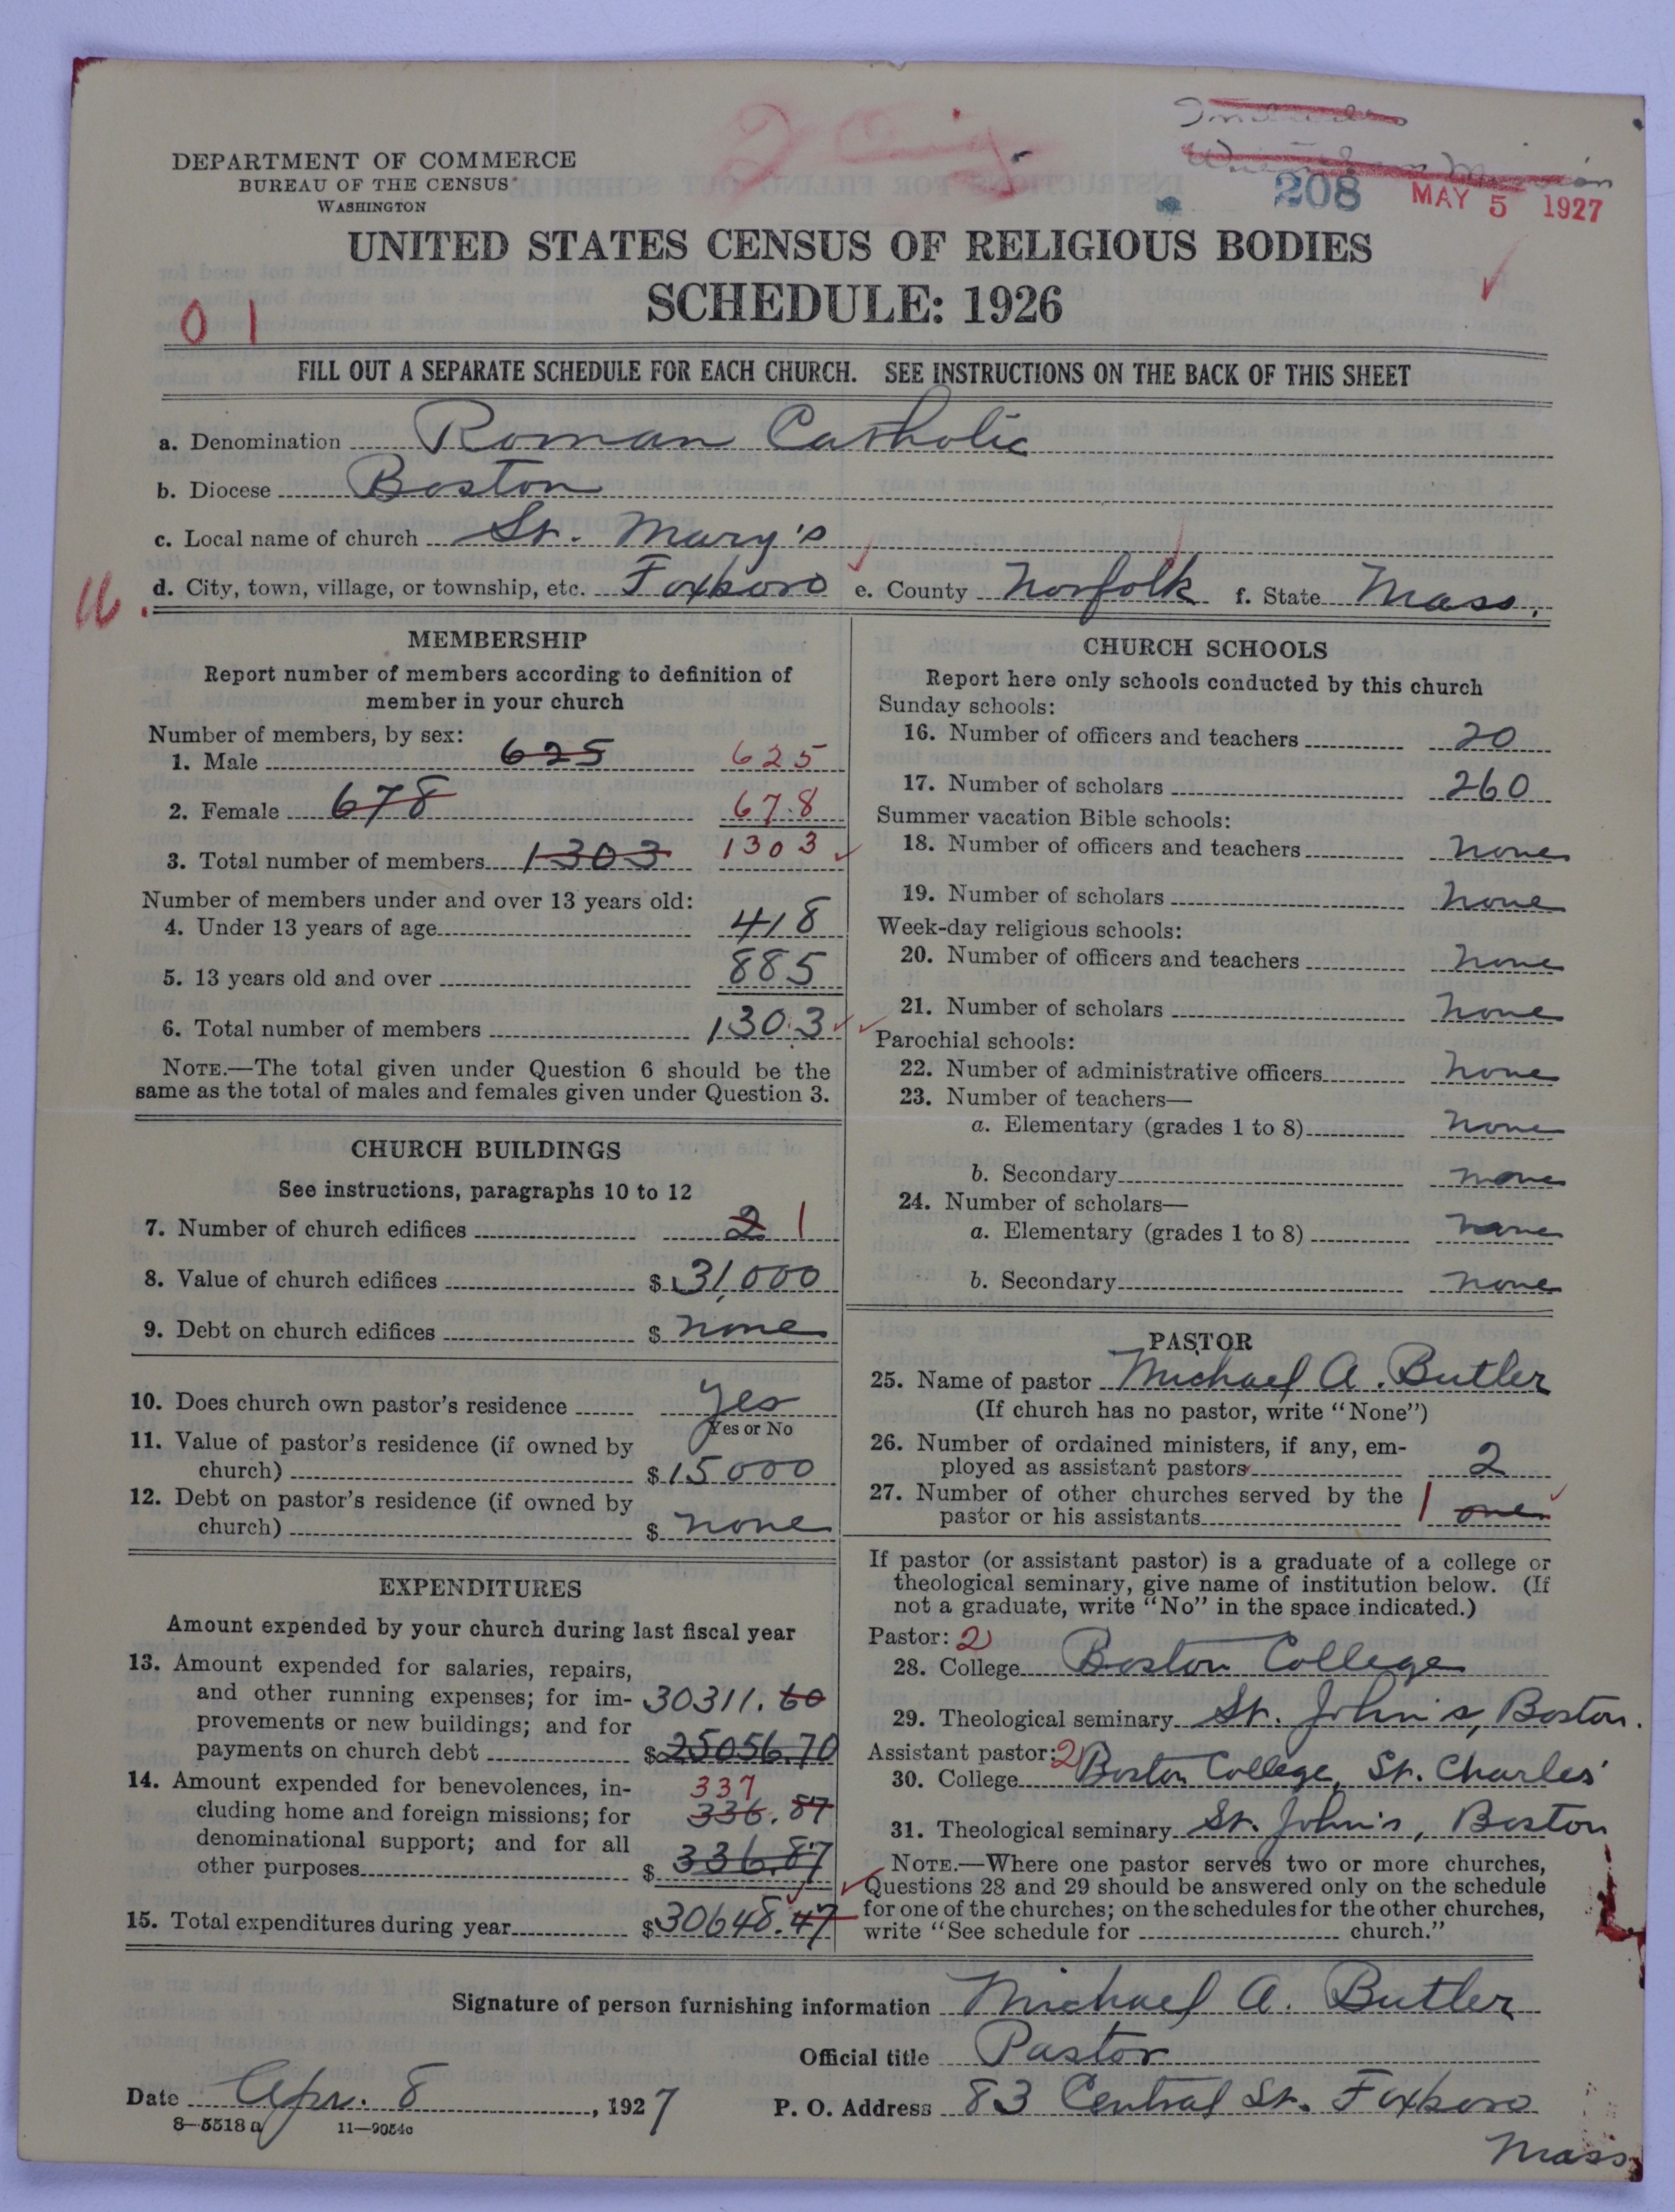 DEPARTMENT OF COMMERCE
BUREAU OF THE CENSUS
WASHINGTON
208
MAY 5 1927
UNITED STATES CENSUS OF RELIGIOUS BODIES
SCHEDULE: 1926
0 1
FILL OUT A SEPARATE SCHEDULE FOR EACH CHURCH. SEE INSTRUCTIONS ON THE BACK OF THIS SHEET
a. Denomination Roman Catholic
b. Diocese Boston
c. Local name of church St. Mary's
d. City, town, village, or township, etc. Foxboro e. County Norfolk f. State Mass.
MEMBERSHIP
Report number of members according to definition of
member in your church
Number of members, by sex:
1. Male 625 625
2. Female 678 678
3. Total number of members 1303 1303
Number of members under and over 13 years old:
4. Under 13 years of age 418
5. 13 years old and over 885
6. Total number of members 1303
NOTE.—The total given under Question 6 should be the
same as the total of males and females given under Question 3.
CHURCH BUILDINGS
See instructions, paragraphs 10 to 12
7. Number of church edifices 2 1
8. Value of church edifices $ 31,000
9. Debt on church edifices $ none
10. Does church own pastor's residence Yes
Yes or No
11. Value of pastor's residence (if owned by
church) $ 15000
12. Debt on pastor's residence (if owned by
church) $ none
EXPENDITURES
Amount expended by your church during last fiscal year
13. Amount expended for salaries, repairs,
and other running expenses; for im- 30311.60
provements or new buildings; and for
payments on church debt $ 25056.70
14. Amount expended for benevolences, in- 337
cluding home and foreign missions; for 336.87
denominational support; and for all
other purposes $ 336.87
15. Total expenditures during year $ 30648.47
CHURCH SCHOOLS
Report here only schools conducted by this church
Sunday schools:
16. Number of officers and teachers 20
17. Number of scholars 260
Summer vacation Bible schools:
18. Number of officers and teachers none
19. Number of scholars none
Week-day religious schools:
20. Number of officers and teachers none
21. Number of scholars none
Parochial schools:
22. Number of administrative officers none
23. Number of teachers—
a. Elementary (grades 1 to 8) none
b. Secondary none
24. Number of scholars—
a. Elementary (grades 1 to 8) none
b. Secondary none
PASTOR
25. Name of pastor Michael A. Butler
(If church has no pastor, write "None")
26. Number of ordained ministers, if any, em-
ployed as assistant pastors 2
27. Number of other churches served by the
pastor or his assistants 1 one
If pastor (or assistant pastor) is a graduate of a college or
theological seminary, give name of institution below. (If
not a graduate, write "No" in the space indicated.)
Pastor: 2
28. College Boston College
29. Theological seminary St. John's, Boston.
Assistant pastor: 2
30. College Boston College, St. Charles'
31. Theological seminary St. John's, Boston
NOTE.—Where one pastor serves two or more churches,
Questions 28 and 29 should be answered only on the schedule
for one of the churches; on the schedules for the other churches,
write "See schedule for church."
Signature of person furnishing information Michael A. Butler
Official title Pastor
Date Apr. 8, 1927 P. O. Address 83 Central St. Foxboro
Mass
8—5518 a 11—9054c